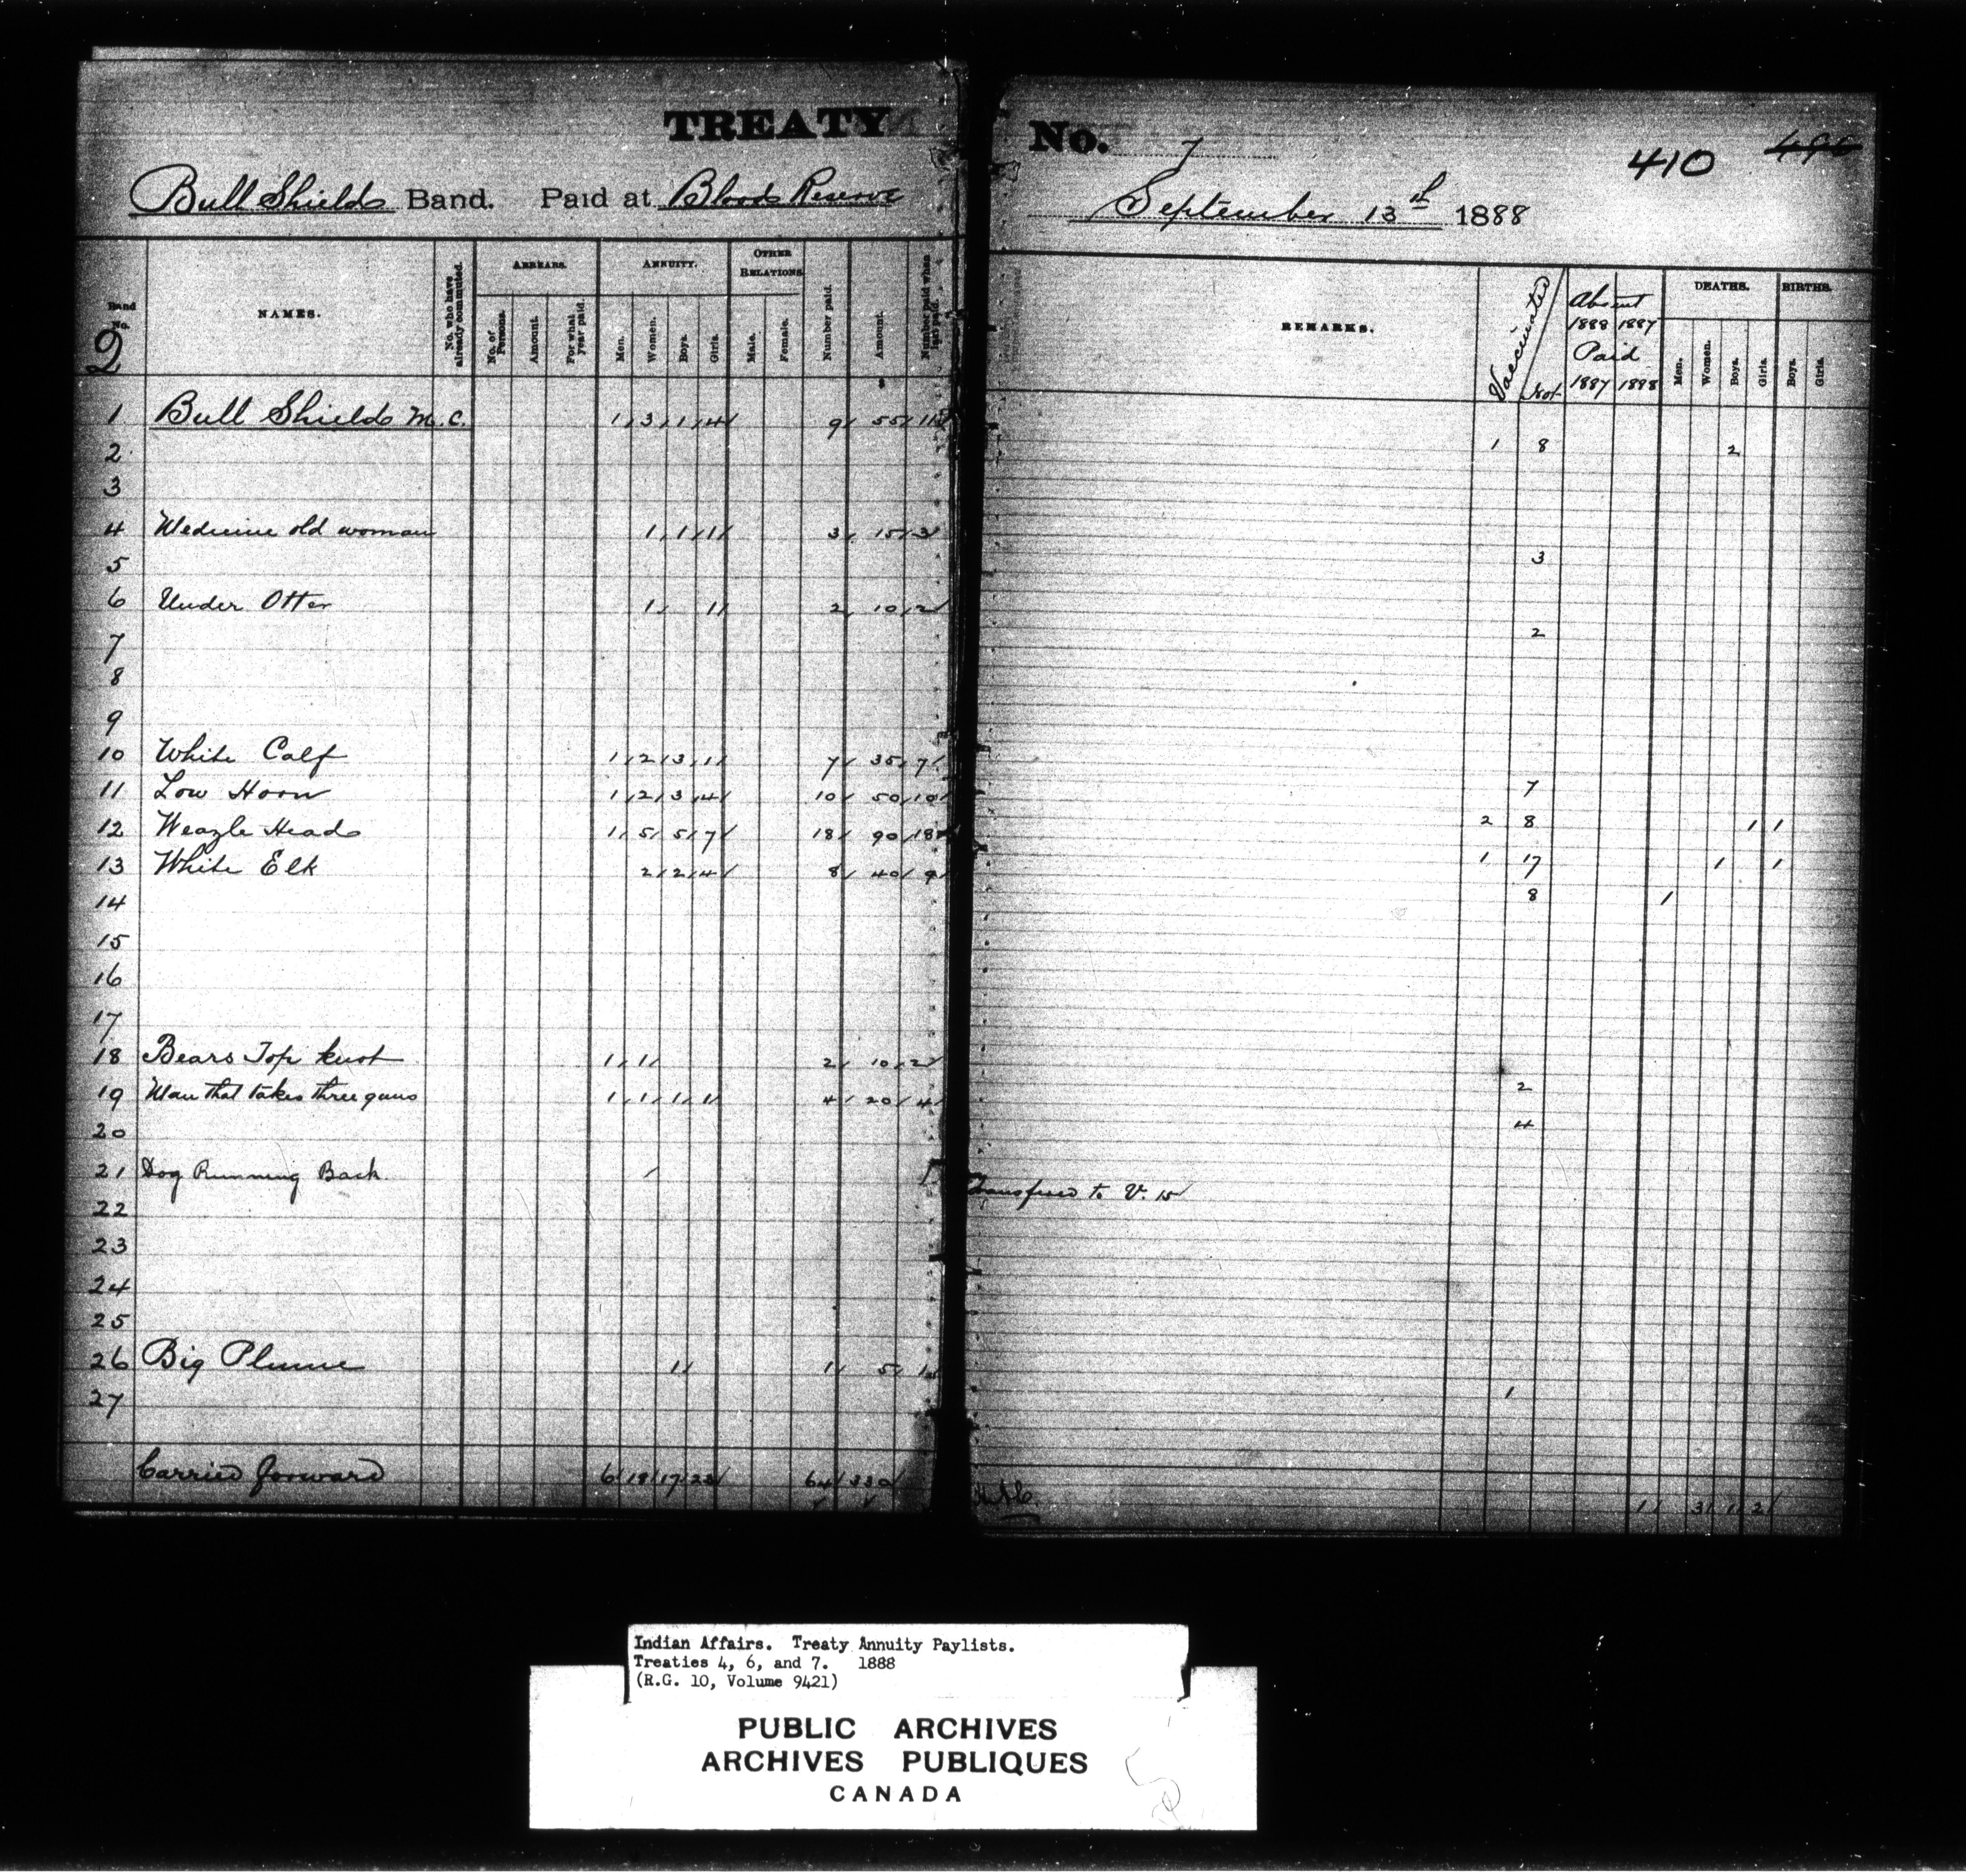 TREATY No. 7
410 496
Bull Shields Band. Paid at Blood Reserve September 13th 1888
Band No. NAMES. No. who have already commuted. ARREARS. No. of Persons. Amount. For what year paid ANNUITY. Men. Women. Boys. Girls. OTHER RELATIONS Male. Female. Number paid. Amount. Number paid when last paid. REMARKS. Vaccinated Not Absent 1888 1887 Paid 1887 1888 DEATHS. Men. Women. Boys. Girls. BIRTHS. Boys. Girls.
2
1 Bull Shields M.C. 1 3 1 4 9 55 11 1 8 2
2
3
4 Medicine old woman 1 1 1 3 15 3 3
5
6 Under Otter 1 1 2 10 2 2
7
8
9
10 White Calf 1 2 3 1 7 35 7 7
11 Low Horn 1 2 3 4 10 50 10 2 8 1 1
12 Weazle Head 1 5 5 7 18 90 18 1 17 1 1
13 White Elk 2 2 4 8 40 9 8 1
14
15
16
17
18 Bears Top knot 1 1 2 10 2 2
19 Man that takes three guns 1 1 1 1 4 20 4 4
20
21 Dog Running Back Transferred to V. 15
22
23
24
25
26 Big Plume 1 1 5 1 1
27
Carried forward 6 18 17 23 64 330 1 3 1 2
Indian Affairs. Treaty Annuity Paylists.
Treaties 4, 6, and 7. 1888
(R.G. 10, Volume 9421)
PUBLIC ARCHIVES
ARCHIVES PUBLIQUES
CANADA